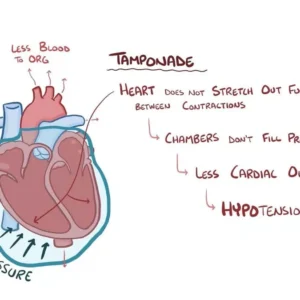 Less Blood
to Org
Tamponade
Heart does not stretch out Fu
between contractions
Chambers don't fill Pr
Less Cardial O
Hypotensio
ssure